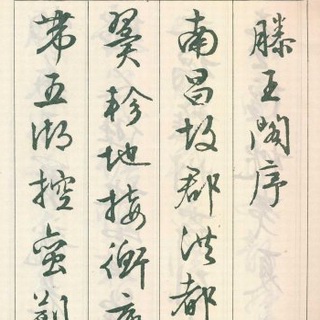 滕王閣序
南昌故郡洪都
翼軫地接衡
带五湖控蛮荆